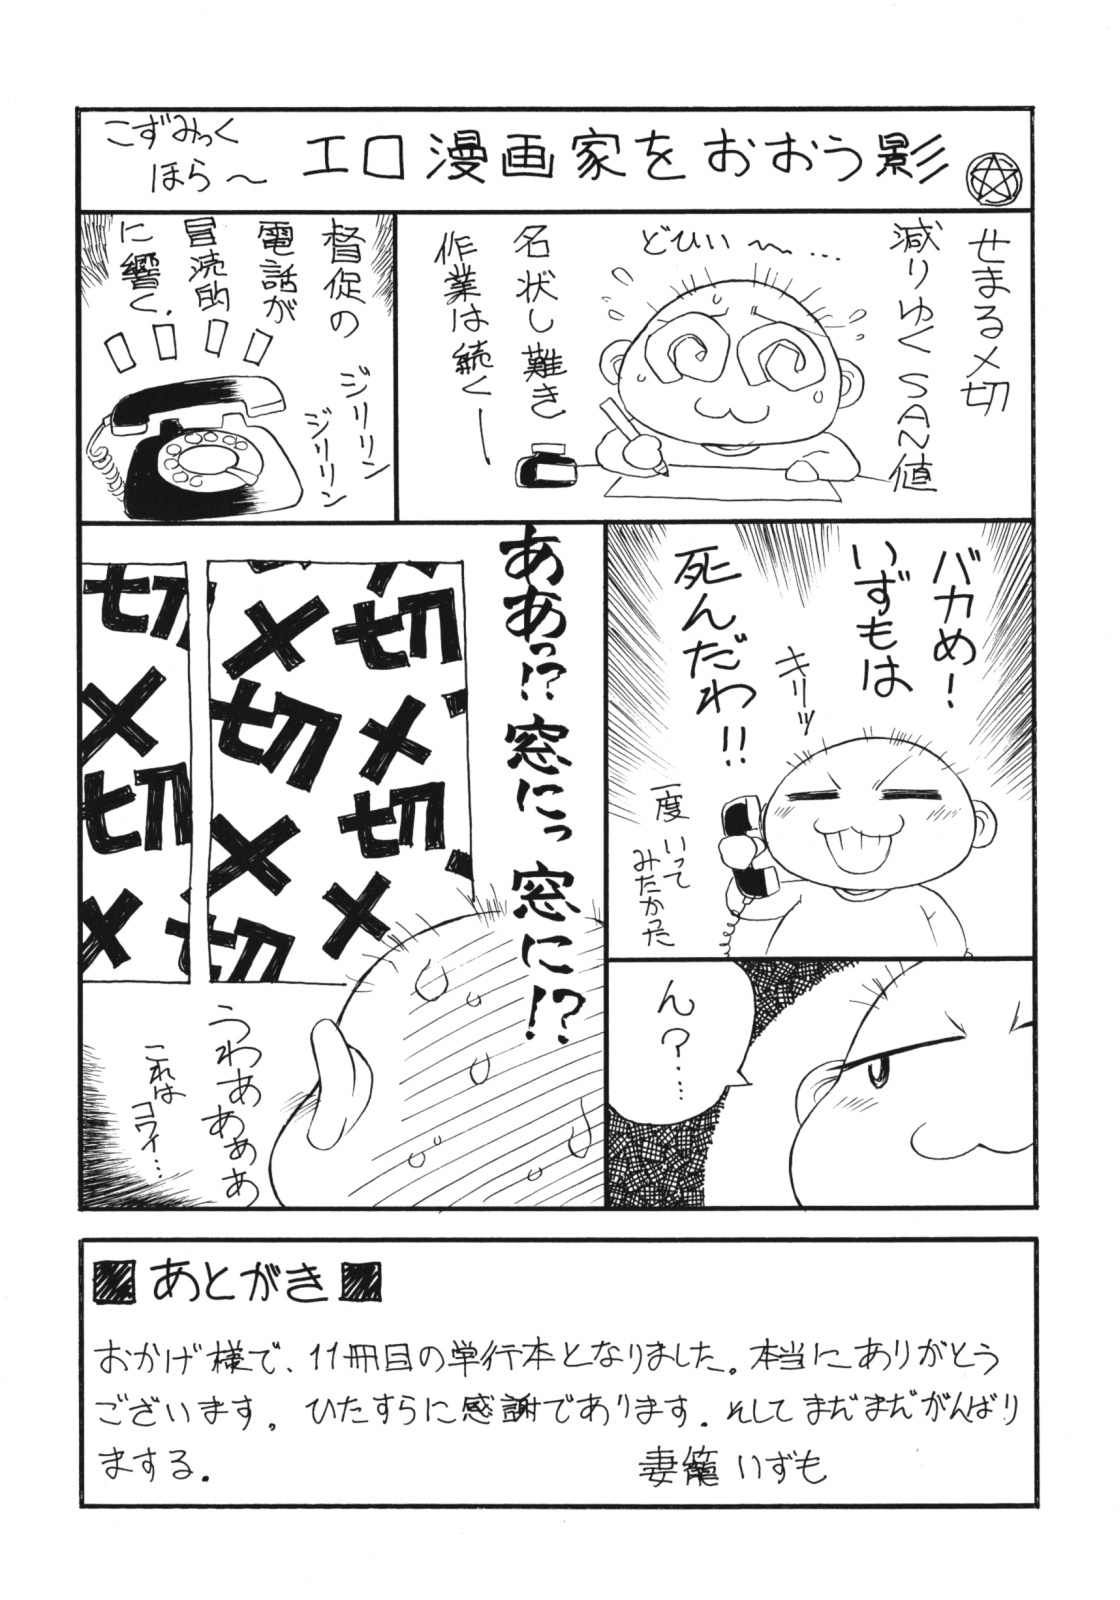 こずみっく
ほら〜
エロ漫画家をおおう影
せまる〆切
減りゆくSAN値
どひぃ〜…
名状し難き
作業は続く―
督促の
電話が
冒涜的
に響く.
ジリリン
ジリリン
バカめ!
いずもは
死んだわ!!
キリッ
一度いって
みたかった
ん?…
ああっ!?窓にっ窓に!?
〆切
〆切
〆切
〆切
〆切
〆切
うわあああぁ
これは
コワイ…
■あとがき■
おかげ様で、11冊目の単行本となりました。本当にありがとう
ございます。ひたすらに感謝であります.そしてまだまだがんばり
まする.
妻籠いずも